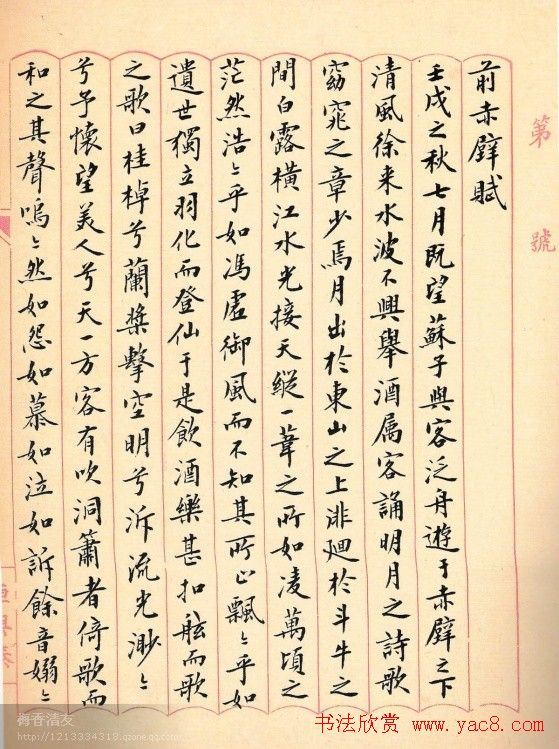 第 號
前赤壁賦
壬戌之秋七月既望蘇子與客泛舟遊于赤壁之下
清風徐来水波不興舉酒属客誦明月之詩歌
窈窕之章少焉月出於東山之上徘廻於斗牛之
間白露橫江水光接天縱一葦之所如凌萬頃之
茫然浩〻乎如馮虛御風而不知其所止飄〻乎如
遺世獨立羽化而登仙于是飲酒樂甚扣舷而歌
之歌曰桂棹兮蘭槳擊空明兮泝流光渺〻
兮予懷望美人兮天一方客有吹洞簫者倚歌而
和之其聲嗚〻然如怨如慕如泣如訴餘音嫋〻
梅香清友
http://1213334318.qzone.qq.com
书法欣赏 www.yac8.com